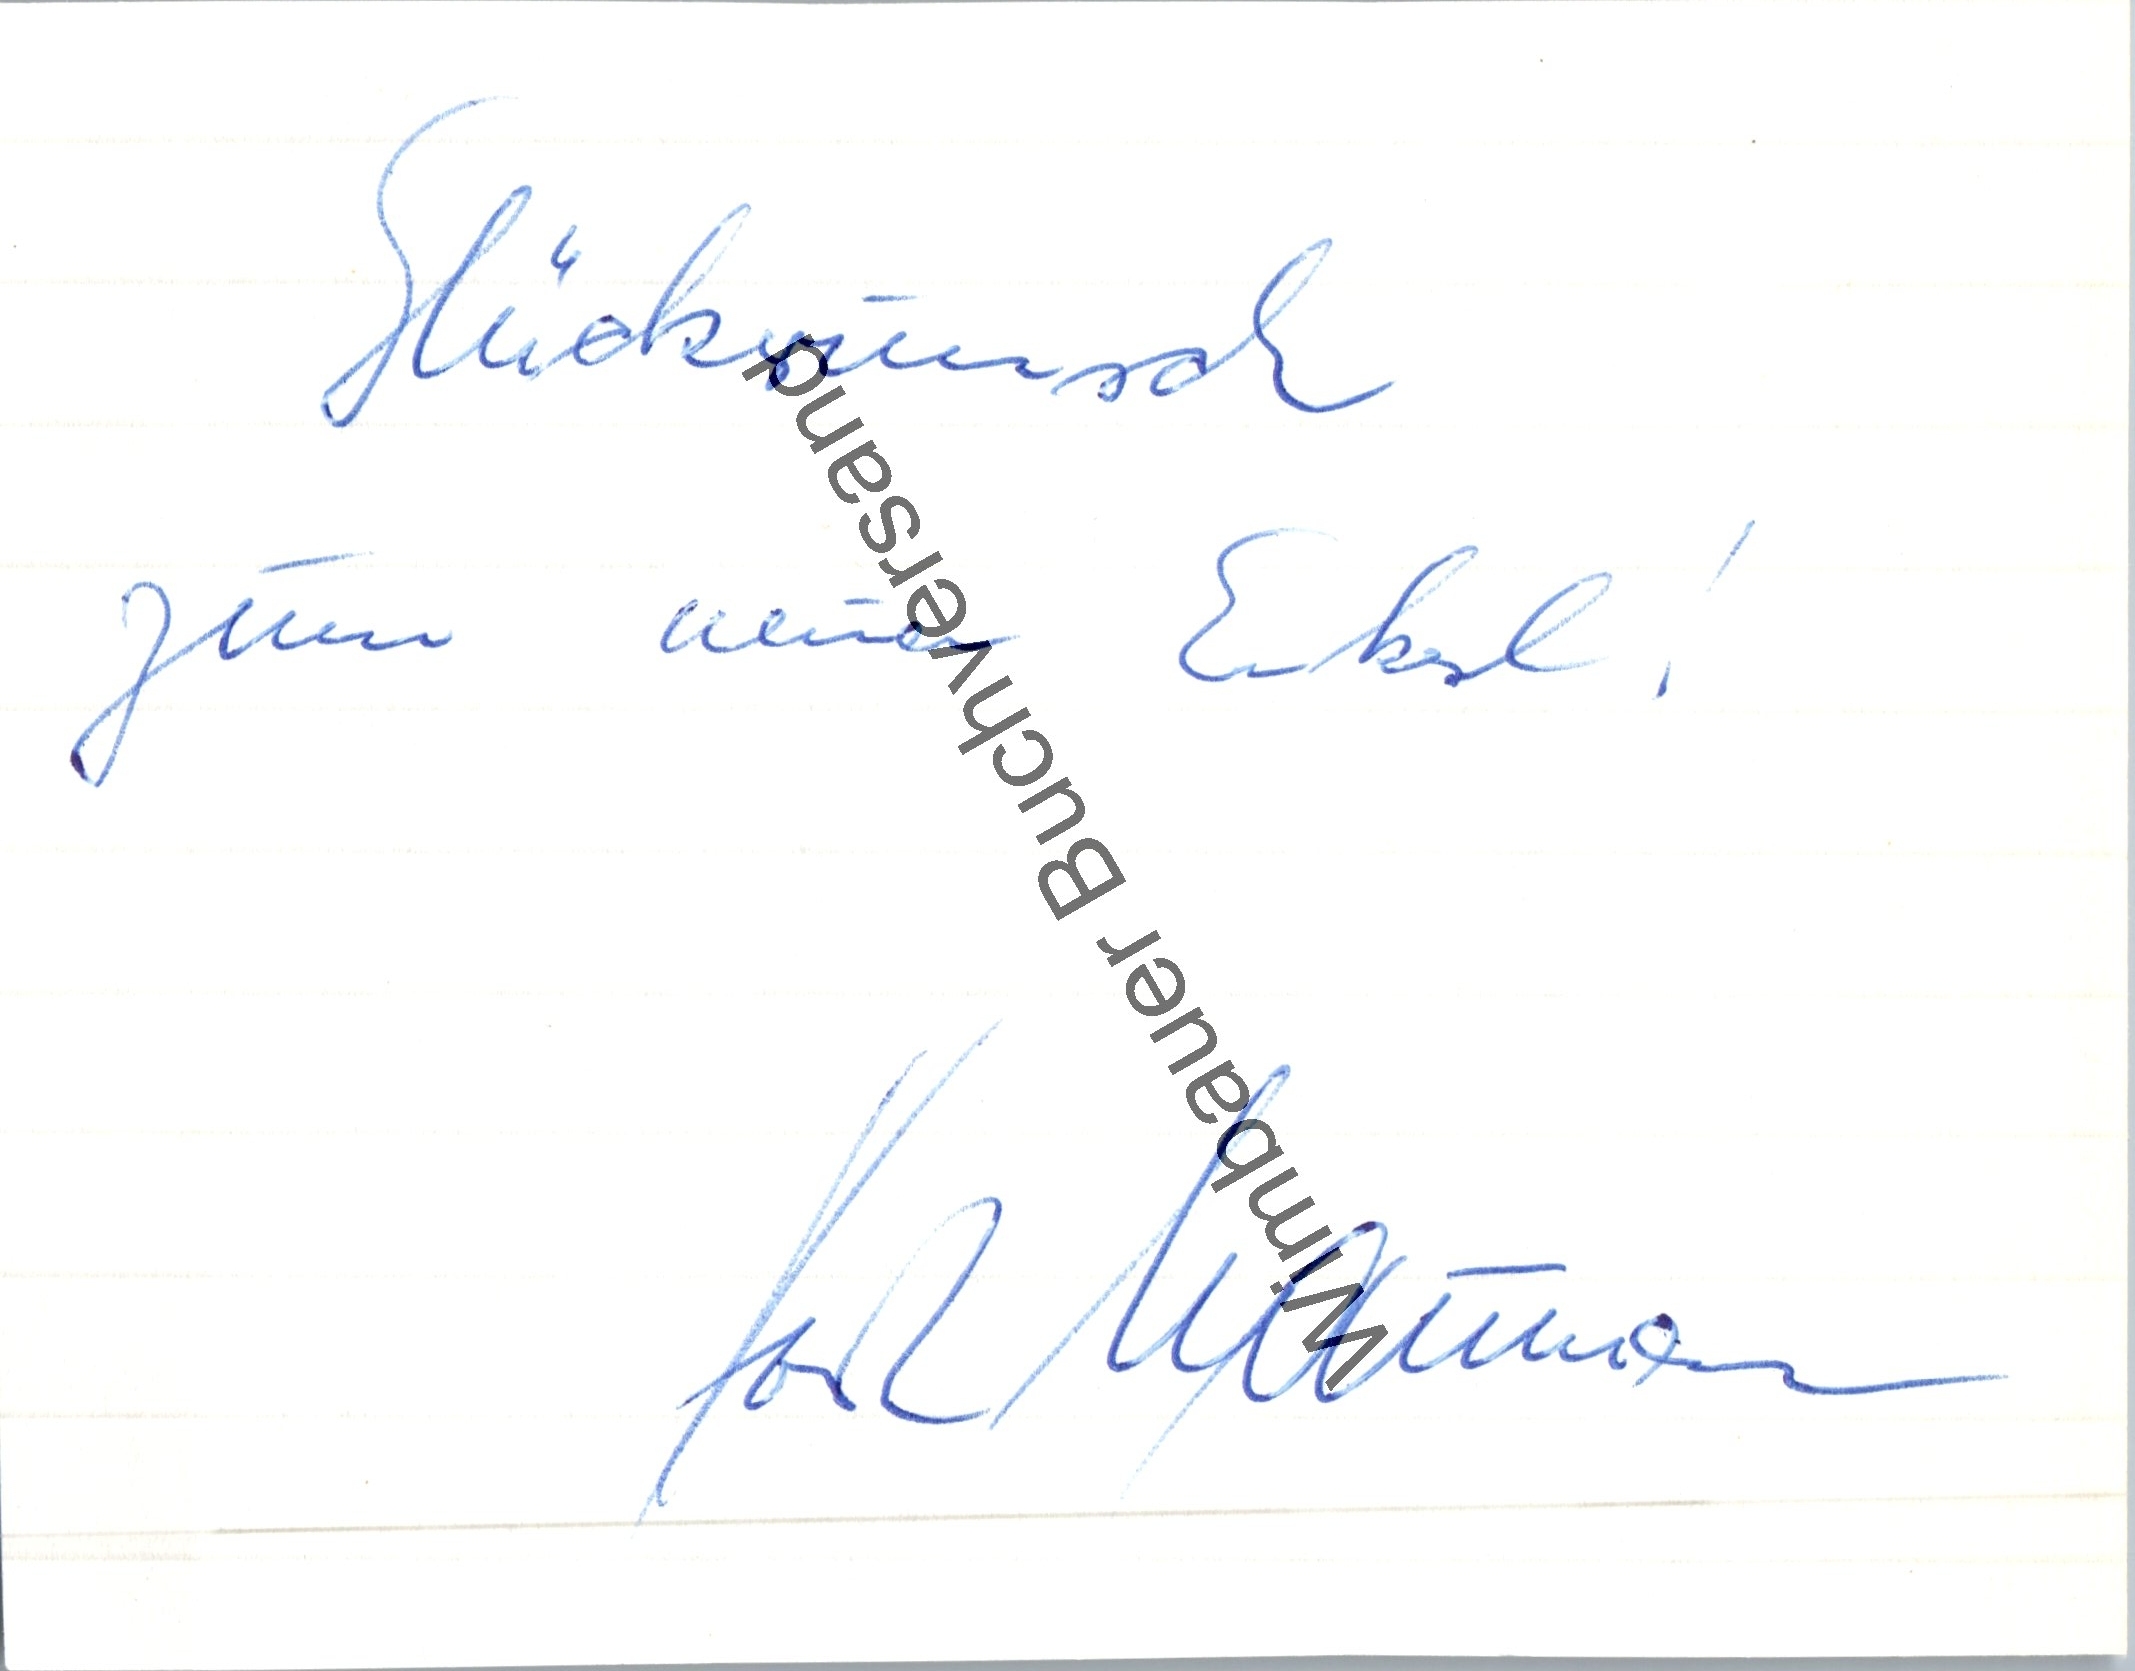 Glückwunsch
zum neuen Enkerl!
Karl
Wimbauer Buchversand